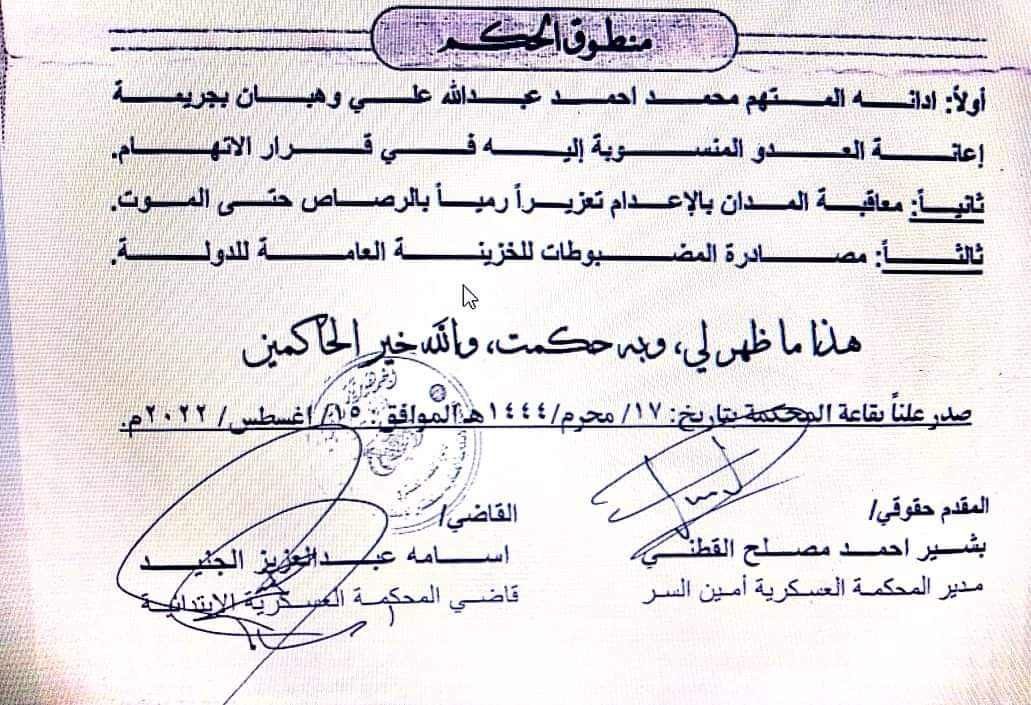 منطوق الحكم
أولاً: ادانه المتهم محمد احمد عبدالله علي وهبان بجريمة
إعانة العدو المنسوبة إليه في قرار الاتهام.
ثانياً: معاقبة المدان بالإعدام تعزيراً رمياً بالرصاص حتى الموت.
ثالثاً: مصادرة المضبوطات للخزينة العامة للدولة.
هذا ما ظهر لي، وبه حكمت، والله خير الحاكمين
صدر علناً بقاعة المحكمة بتاريخ: ١٧/ محرم/١٤٤٤هـ الموافق: ١٥/ اغسطس/ ٢٠٢٢م.
المقدم حقوقي/
بشير احمد مصلح القطني
مدير المحكمة العسكرية أمين السر
القاضي/
اسامه عبدالعزيز الجنيد
قاضي المحكمة العسكرية الابتدائية